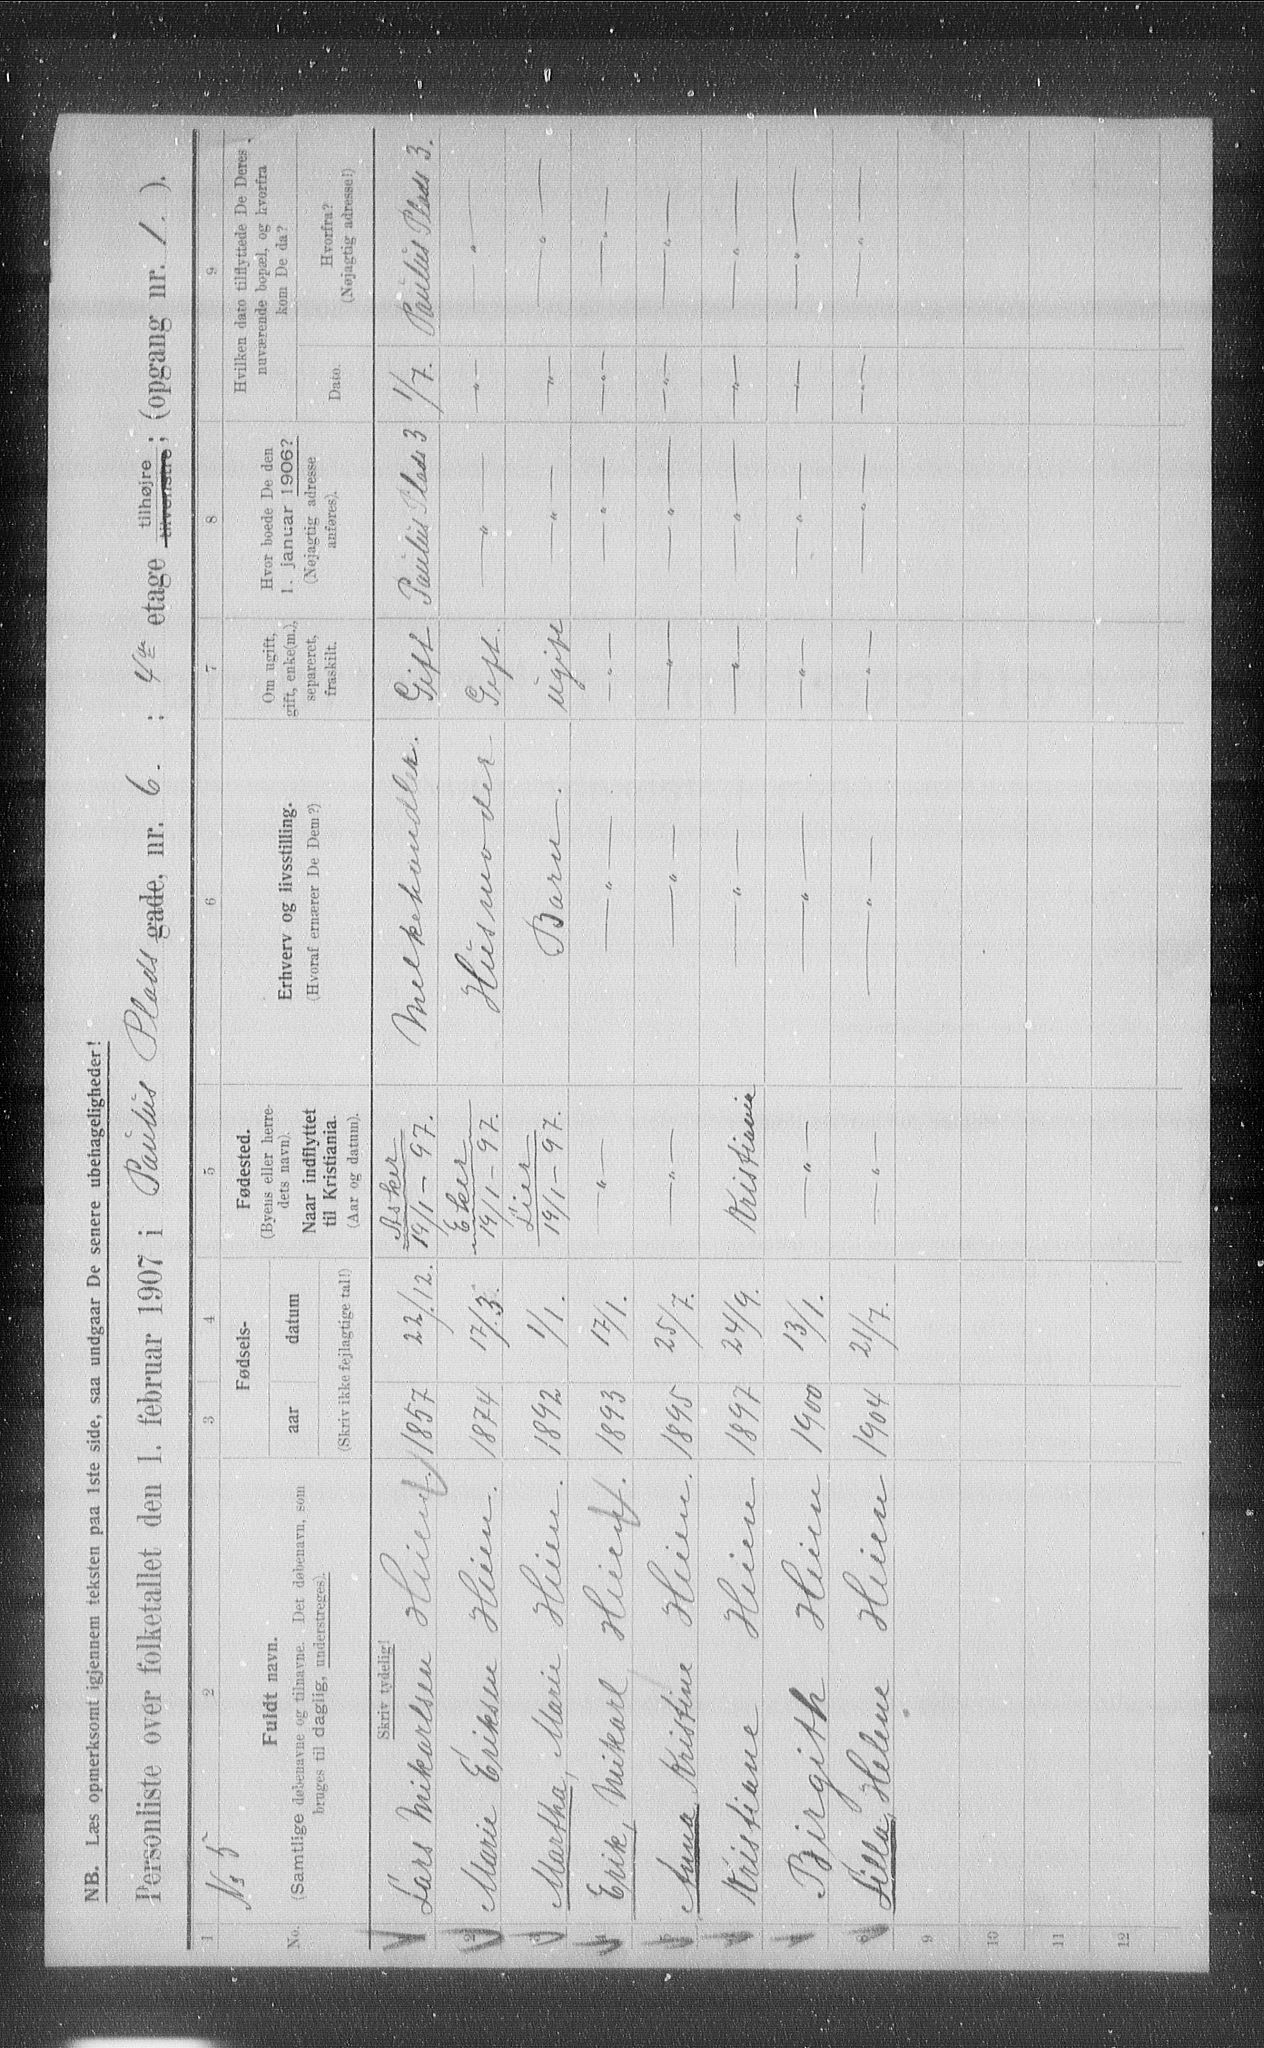 NB. Læs opmerksomt igjennem teksten paa 1ste side, saa undgaar De senere ubehageligheder!
Personliste over folketallet den 1. februar 1907 i Paulus Plads gade, nr. 6. : 4de etage tilhøjre tilvenstre; (opgang nr. 1. ).
1 2 3 4 5 6 7 8 9
No 5
No.
Fuldt navn.
(Samtlige døbenavne og tilnavne. Det døbenavn, som
bruges til daglig, understreges).
Fødsels-
aar datum
(Skriv ikke fejlagtige tal!)
Fødested.
(Byens eller herre-
dets navn).
Naar indflyttet
til Kristiania.
(Aar og datum).
Erhverv og livsstilling.
(Hvoraf ernærer De Dem?)
Om ugift,
gift, enke(m.),
separeret,
fraskilt.
Hvor boede De den
1. januar 1906?
(Nøjagtig adresse
anføres).
Hvilken dato tilflyttede De Deres
nuværende bopæl, og hvorfra
kom De da?
Dato.
Hvorfra?
(Nøjagtig adresse!)
Skriv tydelig!
Asker
Lars Mikarlsen Hiien. 1857 22/12. 19/1 – 97. Melkehandler. Gift Paulus Plads 3 1/7. Paulus Plads 3.
Eker
2 Marie Eriksen Hiien. 1874 17/3. 19/1 – 97. Husmoder Gift. —"— —"— —"—
Lier
Martha, Marie Hiien. 1892 1/1. 19/1 – 97. Barn. ugift —"— —"— —"—
Erik, Mikarl Hiien. 1893 17/1. —"— —"— —"— —"— —"— —"—
Anna, Kristine Hiien. 1895 25/7. —"— —"— —"— —"— —"— —"—
Kristiane Hiien 1897 24/9. Kristiania —"— —"— —"— —"— —"—
Birgith Hiien 1900 13/1. —"— —"— —"— —"— —"— —"—
8 Lilla, Helene Hiien 1904 21/7. —"— —"— —"— —"— —"— —"—
9
10
11
12